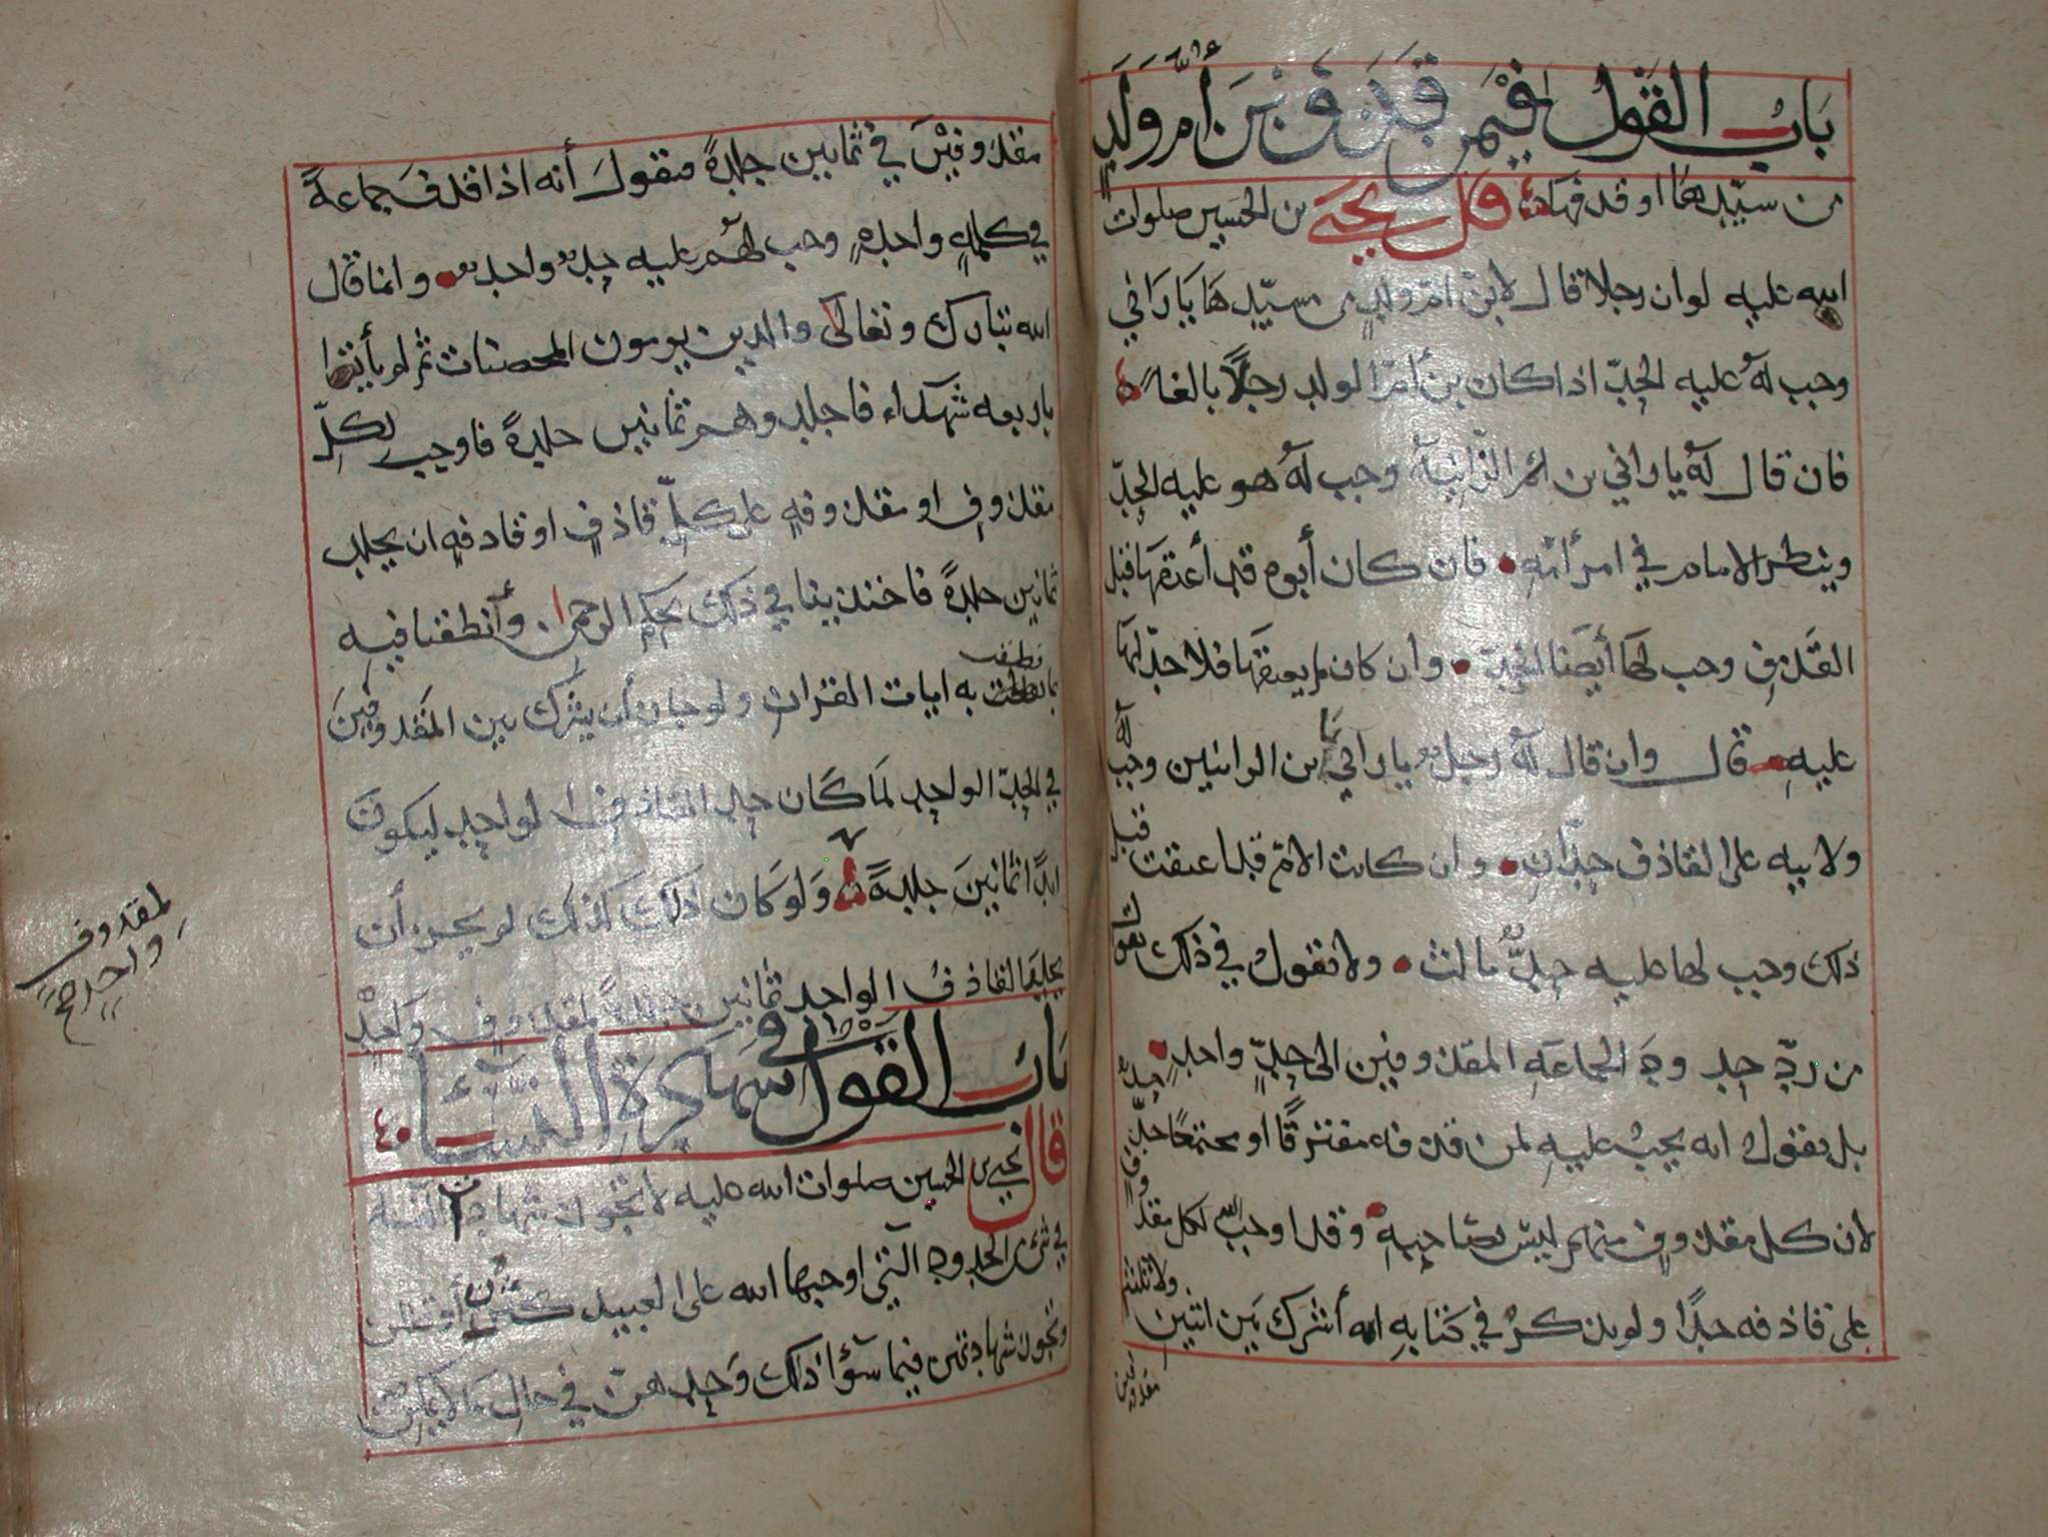 باب القول فيمن قذف بن أم ولد
من سيدها او قد فها قال يحيى بن الحسين صلوات
الله عليه لو ان رجلا قال لابن ام ولد من سيدها يا زاني
وجب له عليه الحد اذا كان بن أم الولد رجلا بالغا
فان قال له يا زاني بن الزانية وجب له هو عليه الحد
وينظر الامام في امر أمه فان كان أبوه قد أعتقها قبل
القذف وجب لها أيضا الحد وان كان لم يعتقها فلا حد لها
عليه قال وان قال له رجل يا زاني يا بن الزانيين وجب له
ولابيه على القاذف حدان وان كانت الام قد اعتقت قبل
ذلك وجب لها عليه حد ثالث ولا نقول في ذلك
من رد حدود الجماعة المقذوفين الى حد واحد
بل نقول انه يجب عليه لمن قذفه مفترقا او مجتمعا حد حد
لان كل مقذوف منهم ليس بصاحبه وقد اوجب الله لكل مقذوف
على قاذفه حدا ولم يذكر في كتابه انه أشرك بين اثنين ولا ثلثة
مقذوفين
مقذوفين في ثمانين جلدة فنقول أنه اذا قذف جماعة
في كلمة واحدة وجب لهم عليه حد واحد وانما قال
الله تبارك وتعالى والذين يرمون المحصنات ثم لم يأتوا
باربعة شهداء فاجلدوهم ثمانين جلدة فاوجب لكل
مقذوف او مقذوفة على كل قاذف او قاذفة ان يجلد
ثمانين جلدة فاخذنا في ذلك بحكم الرحمن وأنطقنا فيه
بما نطقت به ايات القران ولو جاز أن يشرك بين المقذوفين
في الحد الواحد لما كان حد القاذف الواحد ليكون
ابدا ثمانين جلدة ولو كان ذلك كذلك لم يجز أن
يجلد القاذف الواحد ثمانين جلدة لمقذوف واحد
لمقذوف
واحد صح
باب القول في شهادة النساء
قال يحيى بن الحسين صلوات الله عليه لا تجوز شهادة النساء
في شيء من الحدود التي اوجبها الله على العبيد كن أو قللن
وتجوز شهادتهن فيما سوا ذلك وحدهن في حال ما لا يمكن